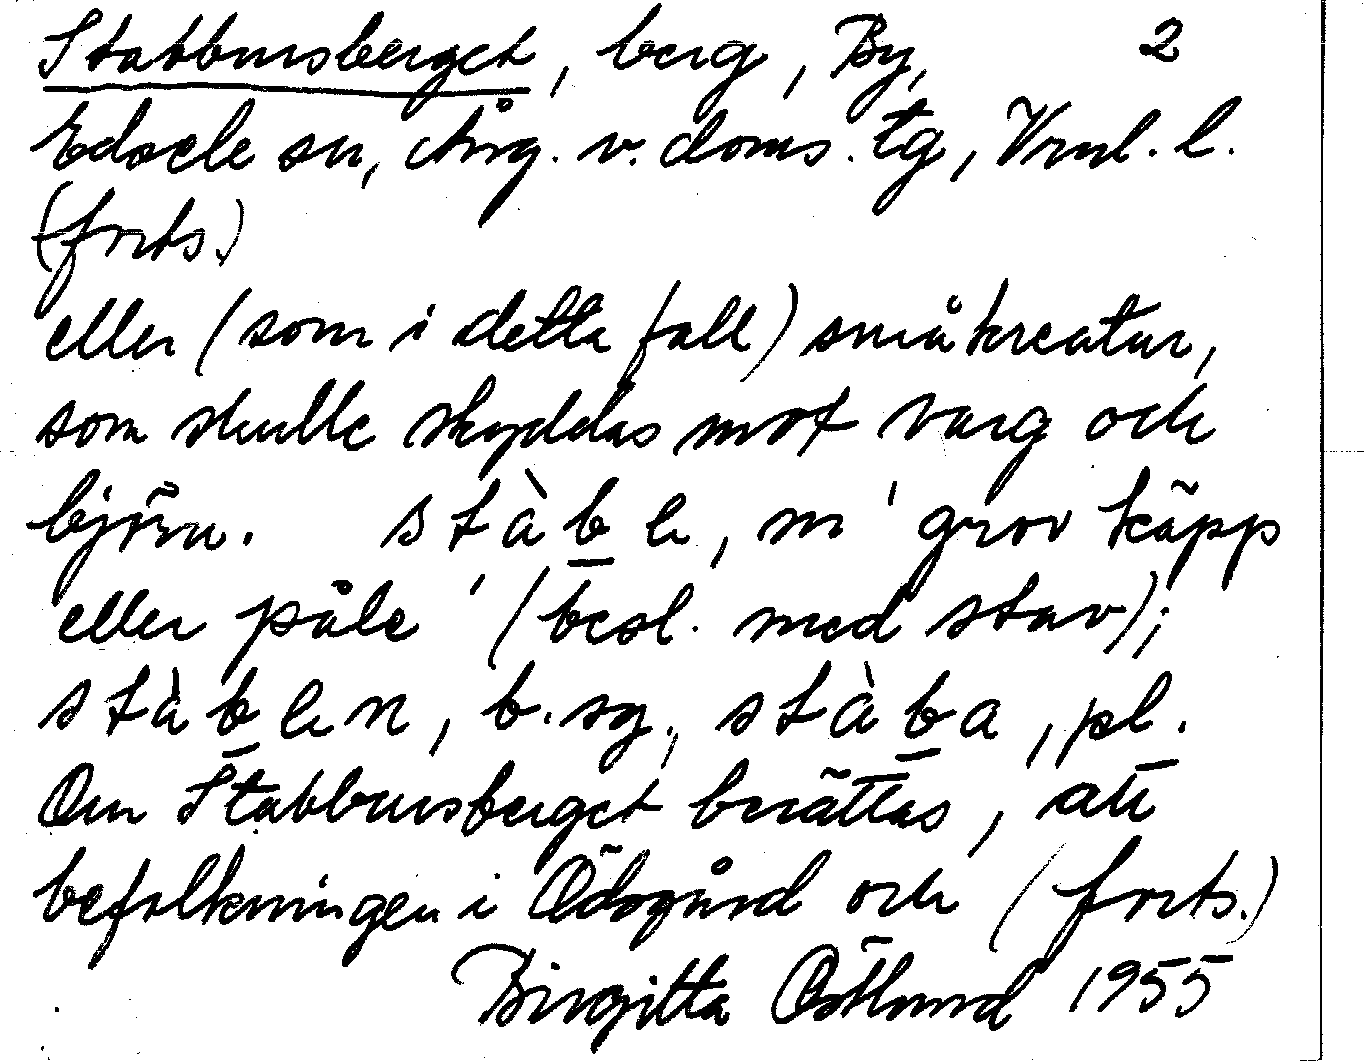 Stabbursberget, berg, By, 2
Edsele sn, Ång. v. doms. tg, Vrnl. l.
(forts.)
eller (som i detta fall) småkreatur,
som skulle skyddas mot varg och
björn. stàbe, m 'grov käpp
eller påle' (besl. med stav);
stàben, b.sg., stàba, pl.
Om Stabbursberget berättas, att
befolkningen i Ödsgård och (forts.)
Birgitta Östlund 1955